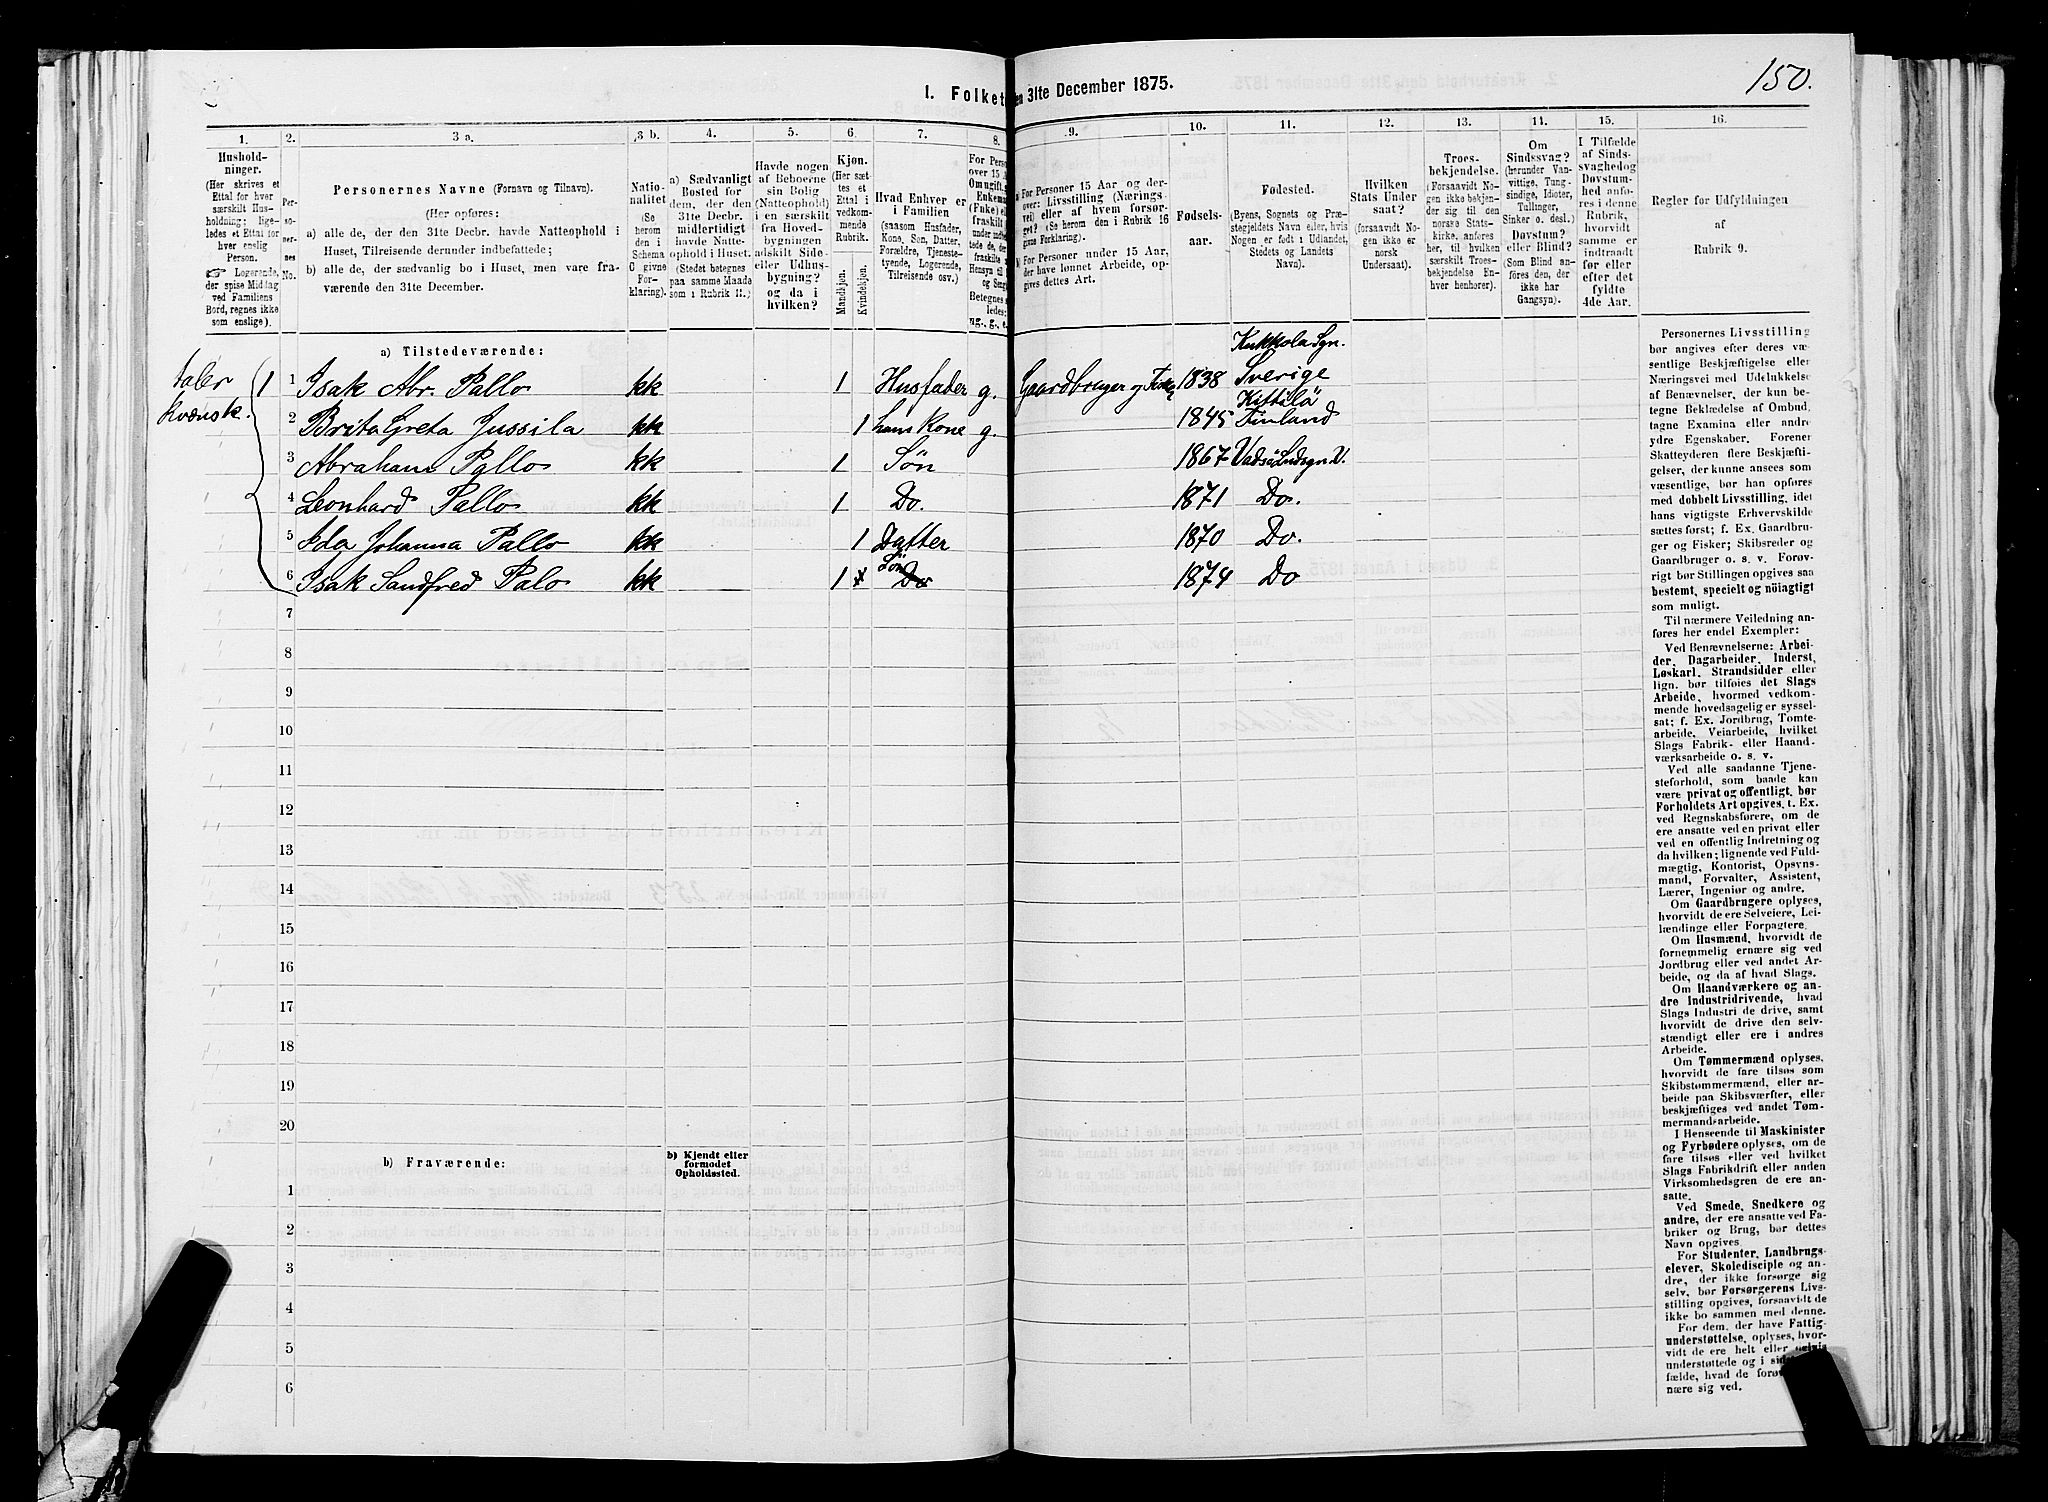 150.
I. Folket
en 31te December 1875.
1. 2. 3 a. 3 b. 4. 5. 6. 7. 8. 9. 10. 11. 12. 13. 14. 15. 16.
Hushold-
ninger.
(Her skrives et
Ettal for hver
særskilt Hus-
holdning; lige-
ledes et Ettal for
hver enslig
Person.
☞ Logerende,
der spise Middag
ved Familiens
Bord, regnes ikke
som enslige).
Per-
so-
ner-
nes
No.
Personernes Navne (Fornavn og Tilnavn).
(Her opføres:
a) alle de, der den 31te Decbr. havde Natteophold i
Huset, Tilreisende derunder indbefattede;
b) alle de, der sædvanlig bo i Huset, men vare fra-
værende den 31te December.
Natio-
nalitet
(Se
herom
den i
Schema
O givne
For-
klaring).
a) Sædvanligt
Bosted for
dem, der den
31te Decbr.
midlertidigt
havde Natte-
ophold i Huset.
(Stedet betegnes
paa samme Maade
som i Rubrik 11.)
Havde nogen
af Beboerne
sin Bolig
(Natteophold)
i en særskilt
fra Hoved-
bygningen
adskilt Side-
eller Udhus-
bygning?
og da i
hvilken?
Kjøn.
(Her sæt-
tes et
Ettal i
vedkom-
mende
Rubrik.
Mandkjøn.
Kvindekjøn.
Hvad Enhver er
i Familien
(saasom Husfader,
Kone, Søn, Datter,
Forældre, Tjeneste-
tyende, Logerende,
Tilreisende osv.)
For Perso
over 15 A
Om ugift,
Enkema
(Enke) el
fraskilt
under indb
tede de, de
fraskilte
Hensyn til
og Seng
Betegnes
ledes:
ug., g., e.
For Personer 15 Aar og der-
over: Livsstilling (Nærings-
vei) eller af hvem forsør-
get? (Se herom den i Rubrik 16
givne Forklaring).
For Personer under 15 Aar,
der have lønnet Arbeide, op-
gives dettes Art.
Fødsels-
aar.
Fødested.
(Byens, Sognets og Præ-
stegjeldets Navn eller, hvis
Nogen er født i Udlandet,
Stedets og Landets
Navn).
Hvilken
Stats Under
saat?
(forsaavidt No-
gen ikke er
norsk
Undersaat).
Troes-
bekjendelse.
(Forsaavidt No-
gen ikke bekjen-
der sig til den
norske Stats-
kirke, anføres
her, til hvilken
særskilt Troes-
bekjendelse En-
hver henhører).
Om
Sindssvag?
(herunder Van-
vittige, Tung-
sindige, Idioter,
Tullinger,
Sinker o. desl.)
Døvstum?
eller Blind?
(Som Blind an-
føres den, der
ikke har
Gangsyn).
I Tilfælde
af Sinds-
svaghed og
Døvstum-
hed anfø-
res i denne
Rubrik,
hvorvidt
samme er
indtraadt
før eller
efter det
fyldte
4de Aar.
Regler for Udfyldningen
af
Rubrik 9.
a) Tilstedeværende:
taler
kvænsk.
1 1 Isak Abr. Pallo kk 1 Husfader g. Gaardbruger og Fisker 1838 Kukkola Sgn. Sverige
2 Brita Greta Jussila kk 1 hans Kone g. 1845 Kittilä Finland
3 Abraham Pallo kk 1 Søn 1867 Vadsø Landsgn. V.
4 Leonhard Pallo kk 1 Do. 1871 Do.
5 Ida Johanna Pallo kk 1 Datter 1870 Do.
6 Isak Sandfred Palo kk 1 Søn Do 1874 Do
7
8
9
10
11
12
13
14
15
16
17
18
19
20
b) Fraværende:
b) Kjendt eller
formodet
Opholdssted.
1
2
3
4
5
6
Personernes Livsstilling
bør angives efter deres væ-
sentlige Beskjæftigelse eller
Næringsvei med Udelukkelse
af Benævnelser, der kun be-
tegne Beklædelse af Ombud,
tagne Examina eller andre
ydre Egenskaber. Forener
Skatteyderen flere Beskjæfti-
gelser, der kunne ansees som
væsentlige, bør han opføres
med dobbelt Livsstilling, idet
hans vigtigste Erhvervskilde
sættes først; f. Ex. Gaardbru-
ger og Fisker; Skibsreder og
Gaardbruger o. s. v. Forøv-
rigt bør Stillingen opgives saa
bestemt, specielt og nöiagtigt
som muligt.
Til nærmere Veiledning an-
føres her endel Exempler:
Ved Benævnelserne: Arbei-
der, Dagarbeider, Inderst,
Løskarl, Strandsidder eller
lign. bør tilføies det Slags
Arbeide, hvormed vedkom-
mende hovedsagelig er syssel-
sat; f. Ex. Jordbrug, Tomte-
arbeide, Veiarbeide, hvilket
Slags Fabrik- eller Haand-
værksarbeide o. s. v.
Ved alle saadanne Tjene-
steforhold, som baade kan
være privat og offentligt, bør
Forholdets Art opgives, t. Ex.
ved Regnskabsførere, om de
ere ansatte ved en privat eller
ved en offentlig Indretning og
da hvilken; lignende ved Fuld-
mægtig, Kontorist, Opsyns-
mand, Forvalter, Assistent,
Lærer, Ingeniør og andre.
Om Gaardbrugere oplyses,
hvorvidt de ere Selveiere, Lei-
lændinge eller Forpagtere.
Om Husmænd, hvorvidt de
fornemmelig ernære sig ved
Jordbrug eller ved andet Ar-
beide, og da af hvad Slags.
Om Haandværkere og an-
dre Industridrivende, hvad
Slags Industri de drive, samt
hvorvidt de drive den selv-
stændigt eller ere i andres
Arbeide.
Om Tømmermænd oplyses,
hvorvidt de fare tilsøs som
Skibstømmermænd, eller ar-
beide paa Skibsværfter, eller
beskjæftiges ved andet Tøm-
mermandsarbeide.
I Henseende til Maskinister
og Fyrbødere oplyses, om de
fare tilsøs eller ved hvilket
Slags Fabrikdrift eller anden
Virksomhedsgren de ere an-
satte.
Ved Smede, Snedkere og
andre, der ere ansatte ved Fa-
briker og Brug, bør dettes
Navn opgives.
For Studenter, Landbrugs-
elever, Skoledisciple og an-
dre, der ikke forsørge sig
selv, bør Forsørgerens Livs-
stilling opgives, forsaavidt de
ikke bo sammen med denne.
For dem, der have Fattig-
understøttelse, oplyses, hvor-
vidt de ere helt eller delvis
understøttede og i sidste
fælde, hvad de forøvrigt
nære sig ved.